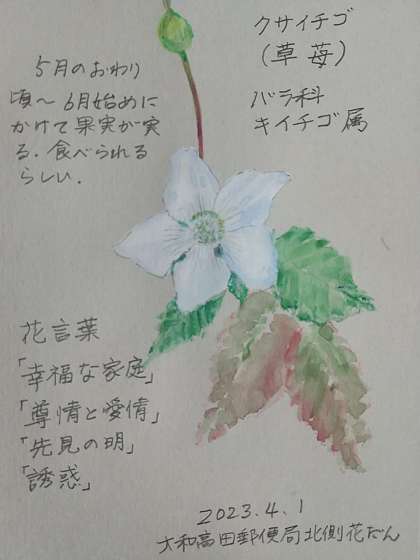 クサイチゴ
(草苺)
バラ科
キイチゴ属
5月のおわり
頃〜6月始めに
かけて果実が実
る。食べられる
らしい。
花言葉
「幸福な家庭」
「尊情と愛情」
「先見の明」
「誘惑」
2023.4.1
大和高田郵便局北側花だん